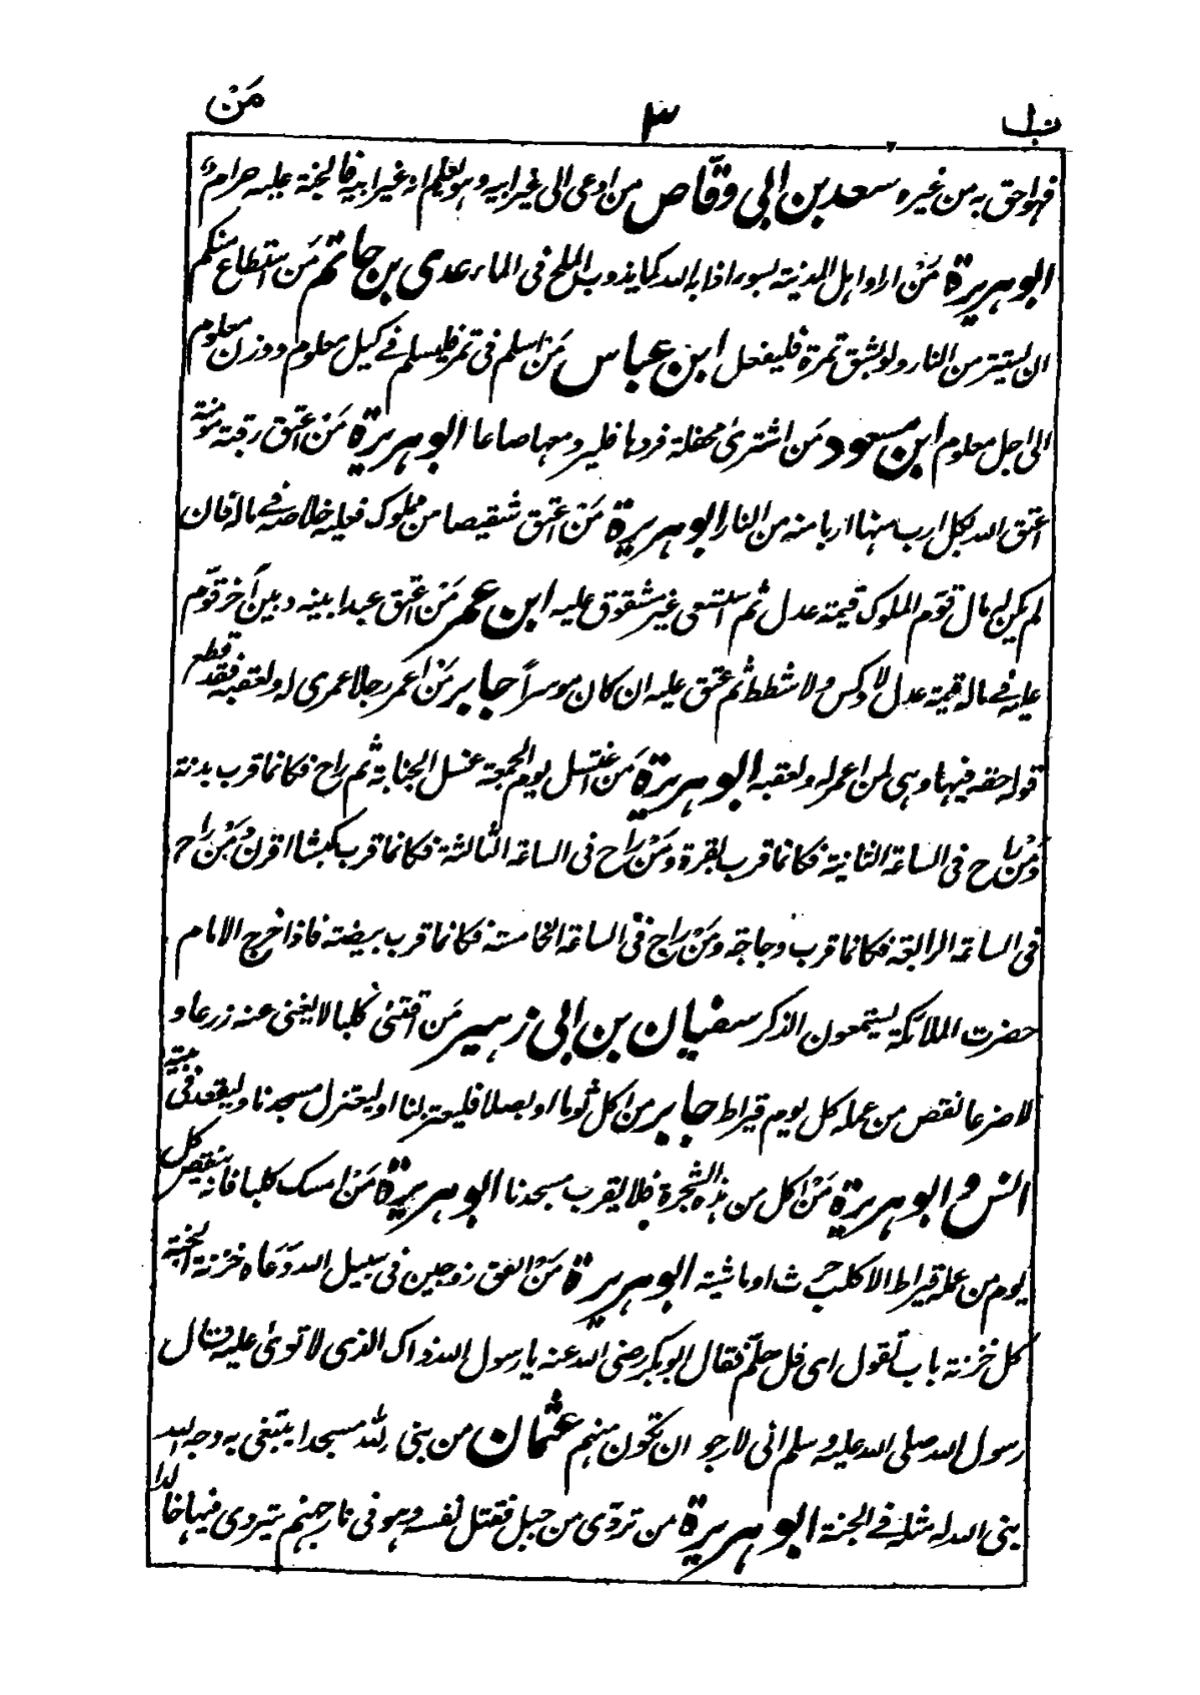 باب ٣ مَن
فهو احق به من غيره سعد بن ابى وقّاص من ادعى الى غير ابيه وهو يعلم انه غير ابيه فالجنة عليه حرام
ابو هريرة مَنْ اراد اهل المدينة بسوء اذابه الله كما يذوب الملح فى الماء عدى بن حاتم مَن استطاع منكم
ان يستتر من النار ولو بشق تمرة فليفعل ابن عباس مَن اسلم فى تمر فليسلم فے كيل معلوم ووزن معلوم
الى اجل معلوم ابن مسعود مَن اشترىٰ محفلة فردها فليرد معها صاعا ابو هريرة مَن اعتق رقبة مؤمنة
اعتق الله بكل ارب منها اربا منه من النار ابو هريرة مَن اعتق شقيصا من مملوك فعليه خلاصه فے ماله فان
لم يكن له مال قوّم المملوك قيمة عدل ثم استسعى غير مشقوق عليه ابن عمر مَن اعتق عبدا بينه وبين آخر قوّم
عليه فے ماله قيمة عدل لا وكس ولا شطط ثم عتق عليه ان كان موسراً جابر مَن اعمر رجلا عمرى له ولعقبه فقد قطع
قوله حقه فيها وهى لمن اعمر له ولعقبه ابو هريرة مَن اغتسل يوم الجمعة غسل الجنابة ثم راح فكانما قرب بدنة
ومَنْ راح فى الساعة الثانية فكانما قرب بقرة ومَنْ راح فى الساعة الثالثة فكانما قرب كبشا اقرن ومَنْ راح
فى الساعة الرابعة فكانما قرب دجاجة ومَنْ راح فى الساعة الخامسة فكانما قرب بيضة فاذا خرج الامام
حضرت الملائكة يستمعون الذكر سفيان بن ابى زهير مَن اقتنى كلبا لا يغنى عنه زرعا و
لا ضرعا نقص من عمله كل يوم قيراط جابر من اكل ثوما او بصلا فليعتزلنا او ليعتزل مسجدنا وليقعد فى بيته
انس و ابو هريرة مَنْ اكل من هذه الشجرة فلا يقرب مسجدنا ابو هريرة مَنْ امسك كلبا فانه ينقص كل
يوم من عمله قيراط الا كلب حرث او ماشية ابو هريرة مَنْ انفق زوجين فى سبيل الله دَعَاه خزنة الجنة
كل خزنة باب تقول اى فل هلمّ فقال ابو بكر رضى الله عنه يا رسول الله ذاك الذى لا توىٰ عليه قال
رسول الله صلى الله عليه وسلم انى لارجو ان تكون منهم عثمان من بنى لله مسجدا يبتغى به وجه الله
بنى الله له مثله فے الجنة ابو هريرة من تردّى من جبل فقتل نفسه وهو فى نار جهنم يتردى فيها خالدا